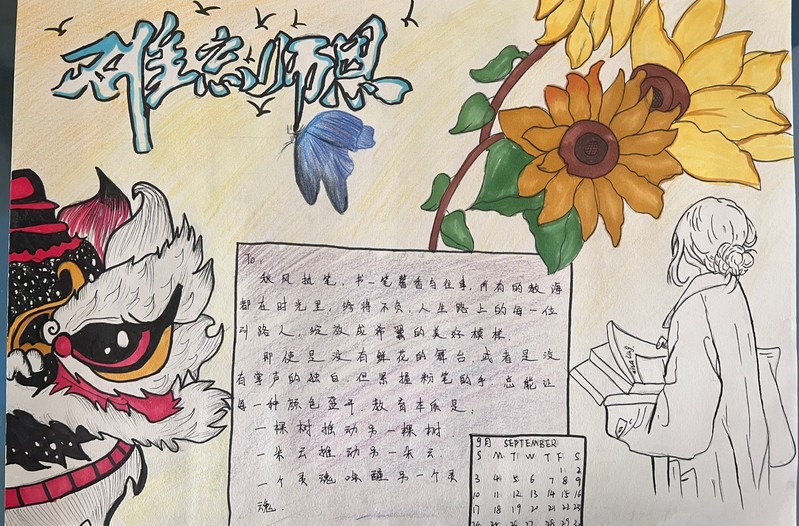 难忘师恩
To:
秋风执笔,书一笔馨香与往事,所有的教诲
都在时光里,终将不负,人生路上的每一位
引路人,绽放成希冀的美好模样.
即使是没有鲜花的舞台,或者是没
有掌声的独白,但紧握粉笔的手,总能让
每一种颜色盛开,教育本质是:
一棵树摇动另一棵树.
一朵云推动另一朵云
一个灵魂唤醒另一个灵
魂.
9月 SEPTEMBER
S M T W T F S
1 2
3 4 5 6 7 8 9
10 11 12 13 14 15 16
17 18 19 20 21 22 23
24 25 26 27 28 29